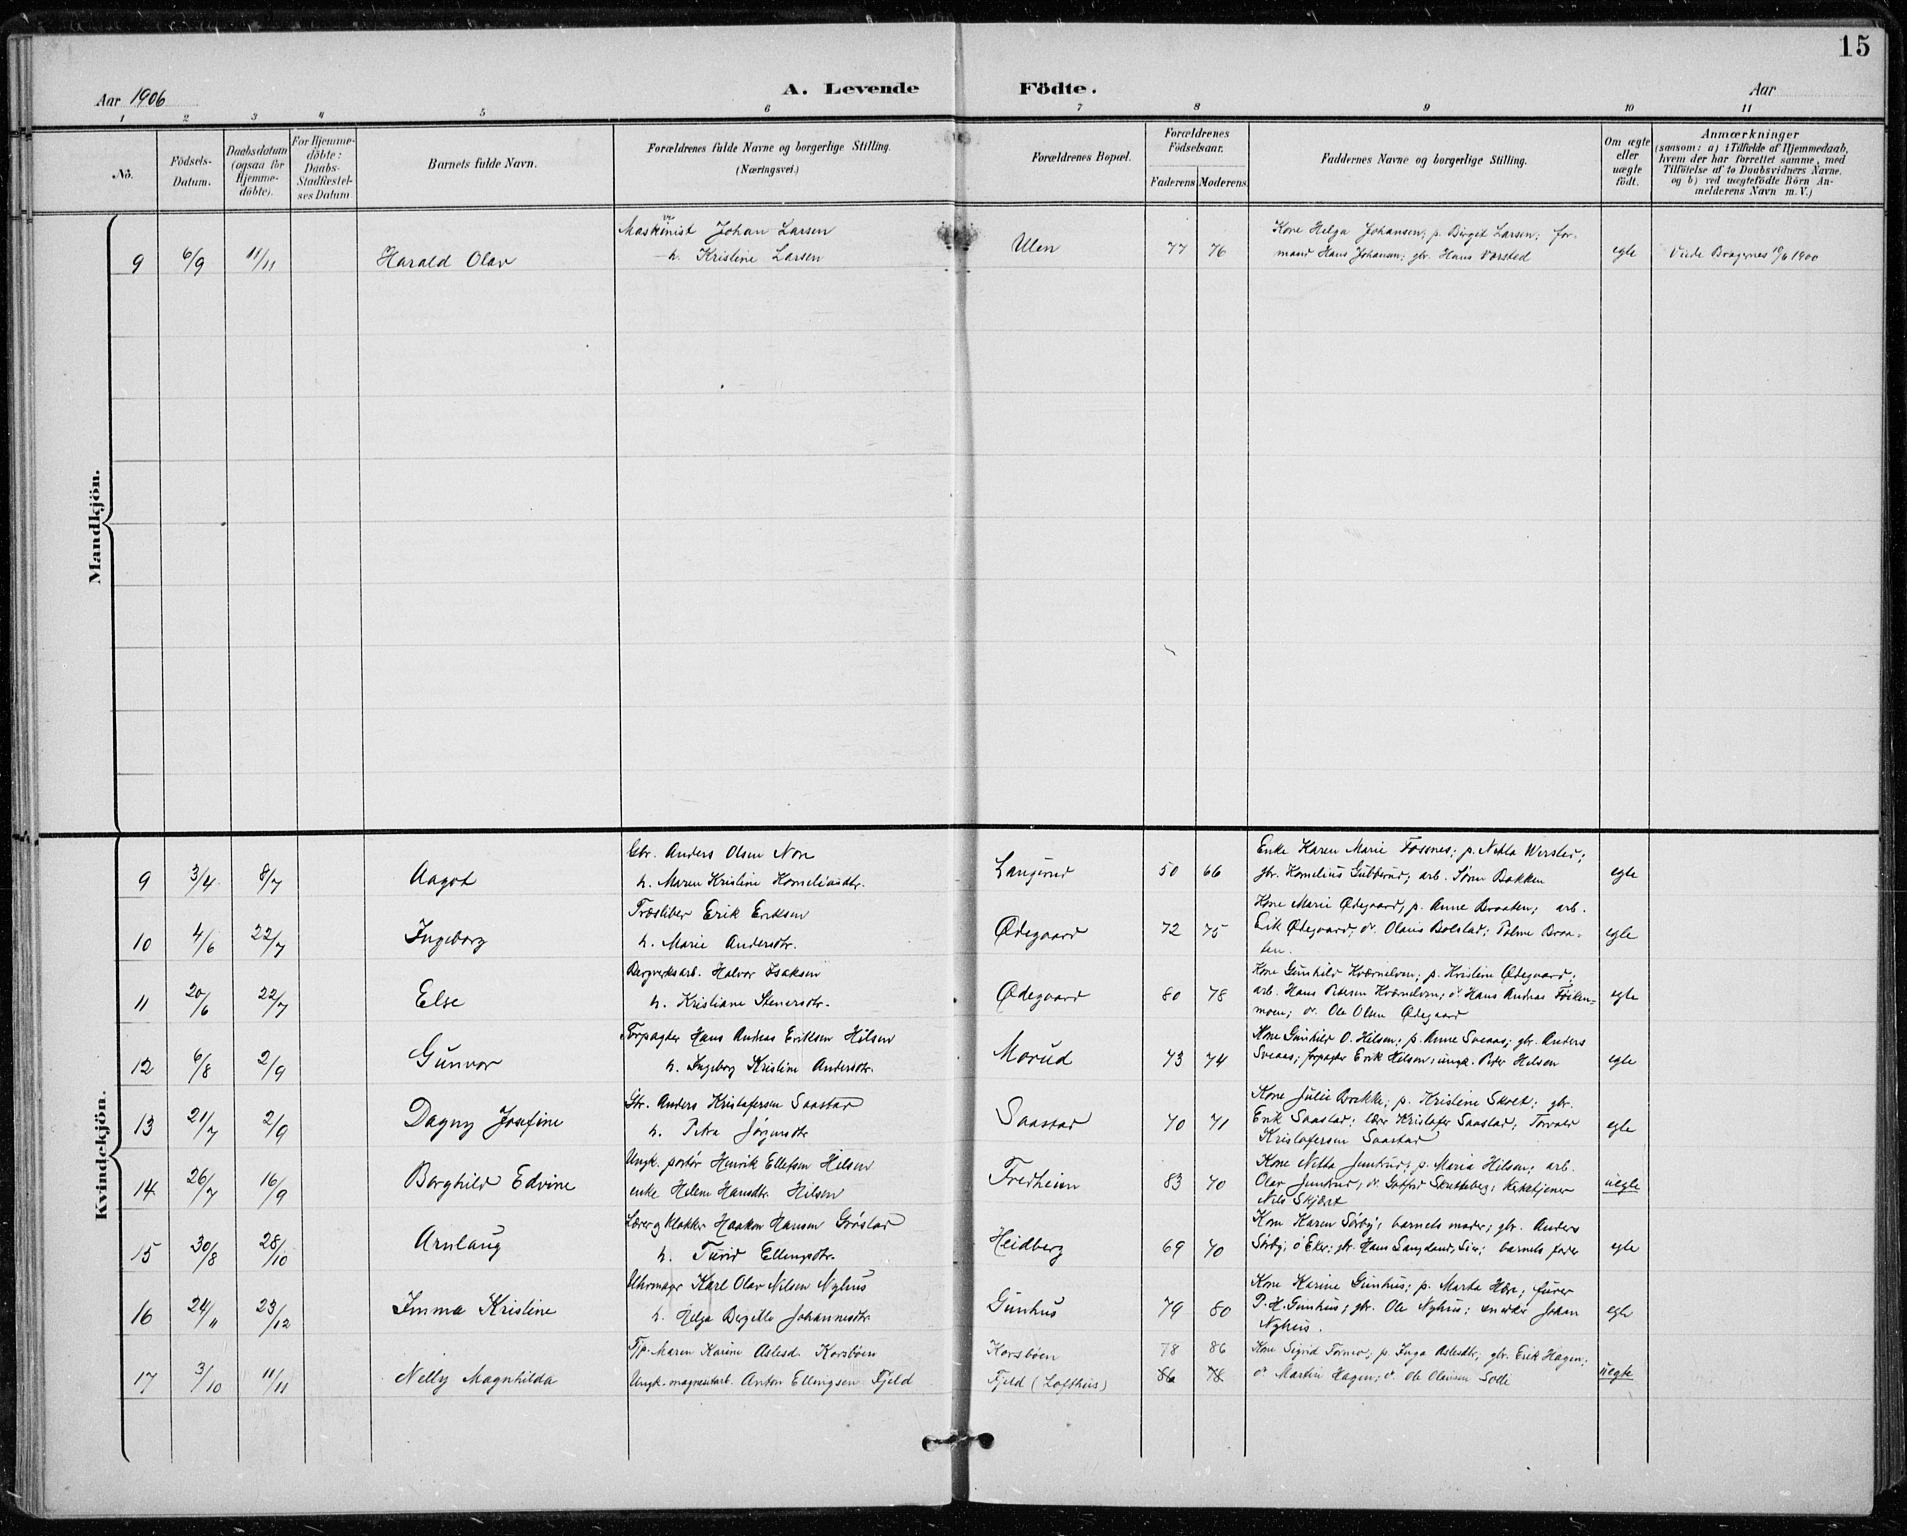 15
Aar 1906
A. Levende Födte.
Aar
1 2 3 4 5 6 7 8 9 10 11
No.
Födsels-Datum.
Daabsdatum (ogsaa for Hjemme-döbte).
For Hjemme-döbte: Daabs-Stadfestel-ses Datum
Barnets fulde Navn.
Forældrenes fulde Navne og borgerlige Stilling. (Næringsvei.)
Forældrenes Bopæl.
Forældrenes Födselsaar.
Faderens Moderens
Faddernes Navne og borgerlige Stilling.
Om ægte eller uægte födt.
Anmærkninger
(saasom: a) i Tilfælde af Hjemmedaab,
hvem der har forrettet samme, med
Tilföielse af to Daabsvidners Navne.
og b) ved uægtefödte Börn An-
melderens Navn m. V.)
Mandkjön.
9 6/9 11/11 Harald Olav
Maskinist Johan Larsen
h. Kristine Larsen
Ulen 77 76
Kone Helga Johansen; p. Birgit Larsen; for-
mand Hans Johansen; gbr. Hans Varsted
egte
Viede Bragernes 10/6 1900
Kvindekjön.
9 3/4 8/7 Aagot
Gbr. Anders Olsen Nore
h. Maren Kristine Korneliusdtr.
Langerud 50 66
Enke Karen Marie Fosnes; p. Netta Wersted;
gbr. Kornelius Gubberud; arb. Søren Bakken
egte
10 4/6 22/7 Ingeborg
Træsliber Erik Eriksen
h. Marie Andersdtr.
Ødegaard 72 75
Kone Marie Ødegaard; p. Anne Braaten; arb.
Erik Ødegaard; do. Olaus Bolstad; Palme Braa-
ten.
egte
11 20/6 22/7 Else
Bergverksarb. Halvor Isaksen
h. Kristiane Stenersdtr.
Ødegaard 80 78
Kone Gunhild Kværnelven; p. Kristine Ødegaard;
arb. Hans Petersen Kværnelven; do. Hans Andreas
moen; do. Ole Olsen Ødegaard
egte
12 6/8 2/9 Gunvor
Forpagter Hans Andreas Eriksen Hilsen
h. Ingeborg Kristine Andersdtr.
Morud 73 74
Kone Gunhild O. Hilsen; p. Anne Sveaas; gbr. Anders
Sveaas; forpagter Erik Hilsen; ungk. Peder Hilsen
egte
13 21/7 2/9 Dagny Josefine
Gbr. Anders Kristofersen Saastad
h. Petra Jørgensdtr
Saastad 70 71
Kone Julie Brekke; p. Kristine Skret; gbr.
Erik Saastad; lærer Kristofer Saastad; Torvald
Kristofersen Saastad
egte
14 26/7 16/9 Borghild Edvine
Ungk. portør Henrik Ellefsen Hilsen
enke Helene Hansdtr. Hilsen
Fredheim 83 70
Kone Netta Juntrud; p. Maria Hilsen; arb.
Olav Juntrud; do. Gotfred Skutteberg; Kirketjener
Nils Skjæret
uegte
15 30/8 28/10 Arnlaug
Lærer og klokker Haakon Hansen Grøslad
h. Turid Ellingsdtr.
Heidberg 69 70
Kone Karen Sørby; barnets moder; gbr. Anders
Sørby, Ø Eker; gbr. Hans Langeland, Sier; barnets fader
egte
16 24/11 23/12 Imma Kristine
Uhrmager Karl Olav Nilsen Nyhus
h. Helga Bergitte Johannesdtr
Gunhus 79 80
Kone Karine Gunhus; p. Marta Hore; furer
P. H. Gunhus; gbr. Ole Nyhus; snedker Johan
Nyhus.
egte
17 3/10 11/11 Nelly Magnhilda
Tjp. Maren Karine Aslesd. Korsbøen
Ungk. magnentarb. Anton Ellingsen Fjeld
Korsbøen 78 86
Fjeld (Lofthus) 86 78
Kone Sigrid Formo; p. Inga Aslesdtr; gbr. Erik Hagen;
do Martin Hagen; do. Ole Olausen Solli
uegte